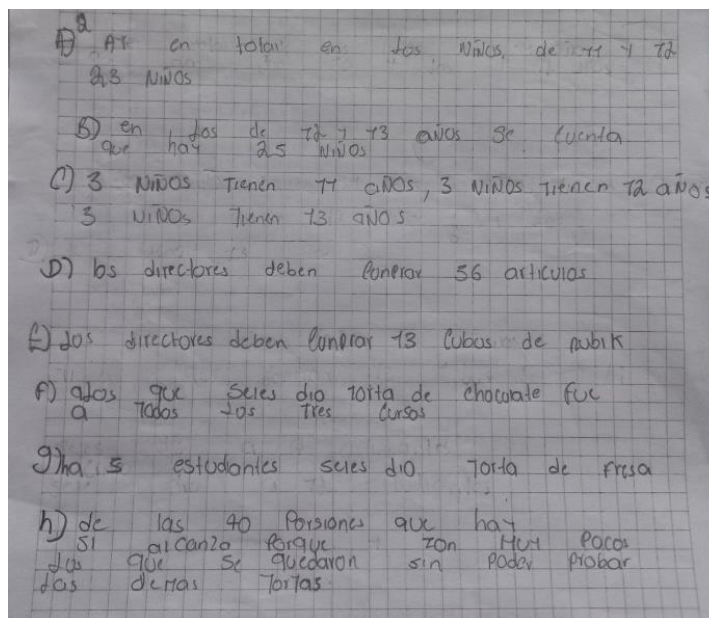 2
A) AY en total en los Niños, de 11 y 12
23 Niños
B) en los de 12 y 13 años se cuenta
que hay 25 Niños
C) 3 Niños Tienen 11 años, 3 Niños Tienen 12 años
3 Niños Tienen 13 años
D) los directores deben Conprar 56 articulos
E) los directores deben Conprar 13 Cubos de rubik
F) alos que seles dio torta de chocolate fue
a Todos los tres cursos
g) ha 5 estudiantes seles dio Torta de fresa
h) de las 40 Porsiones que hay
si alcanzo Porque zon Muy Pocos
los que se quedaron sin Poder Probar
las demas Tortas